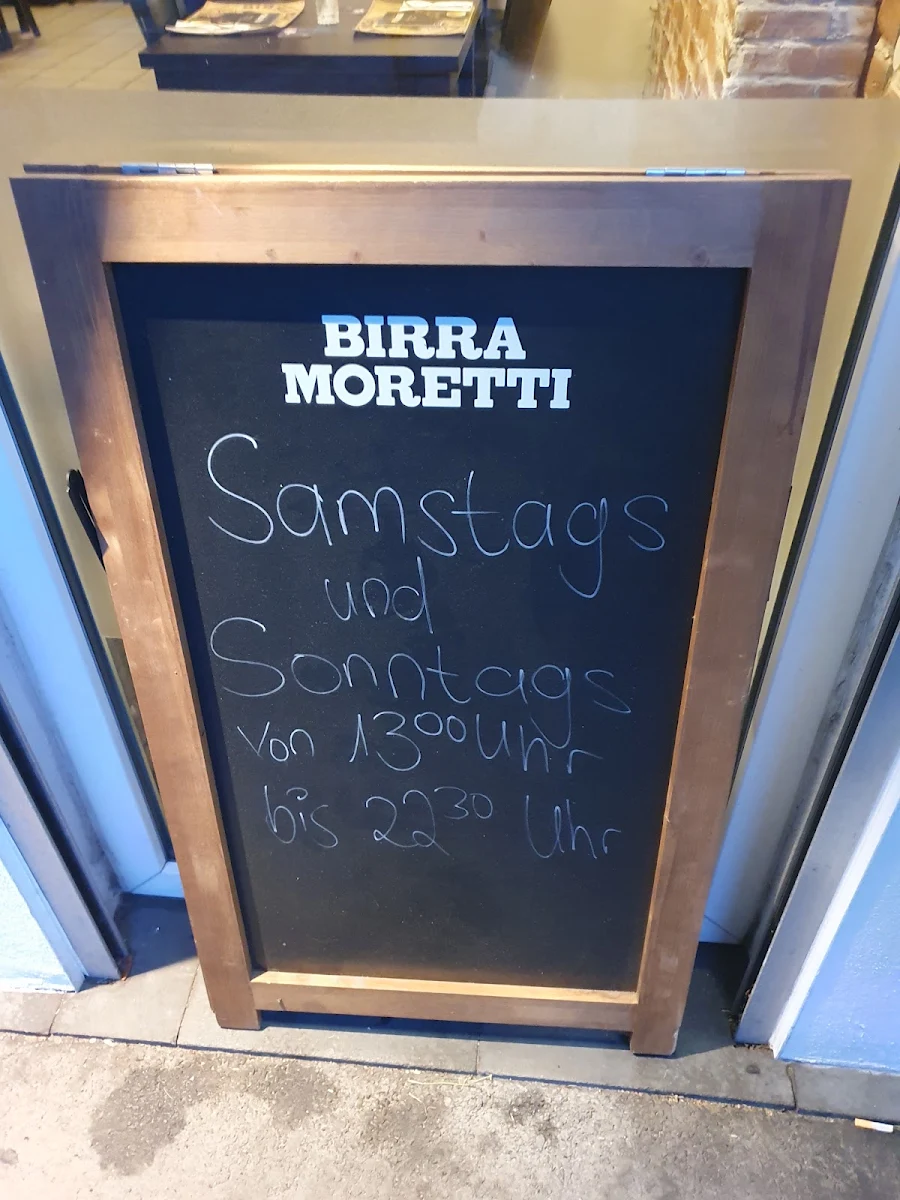 BIRRA
MORETTI
Samstags
und
Sonntags
von 13⁰⁰ Uhr
bis 22³⁰ Uhr